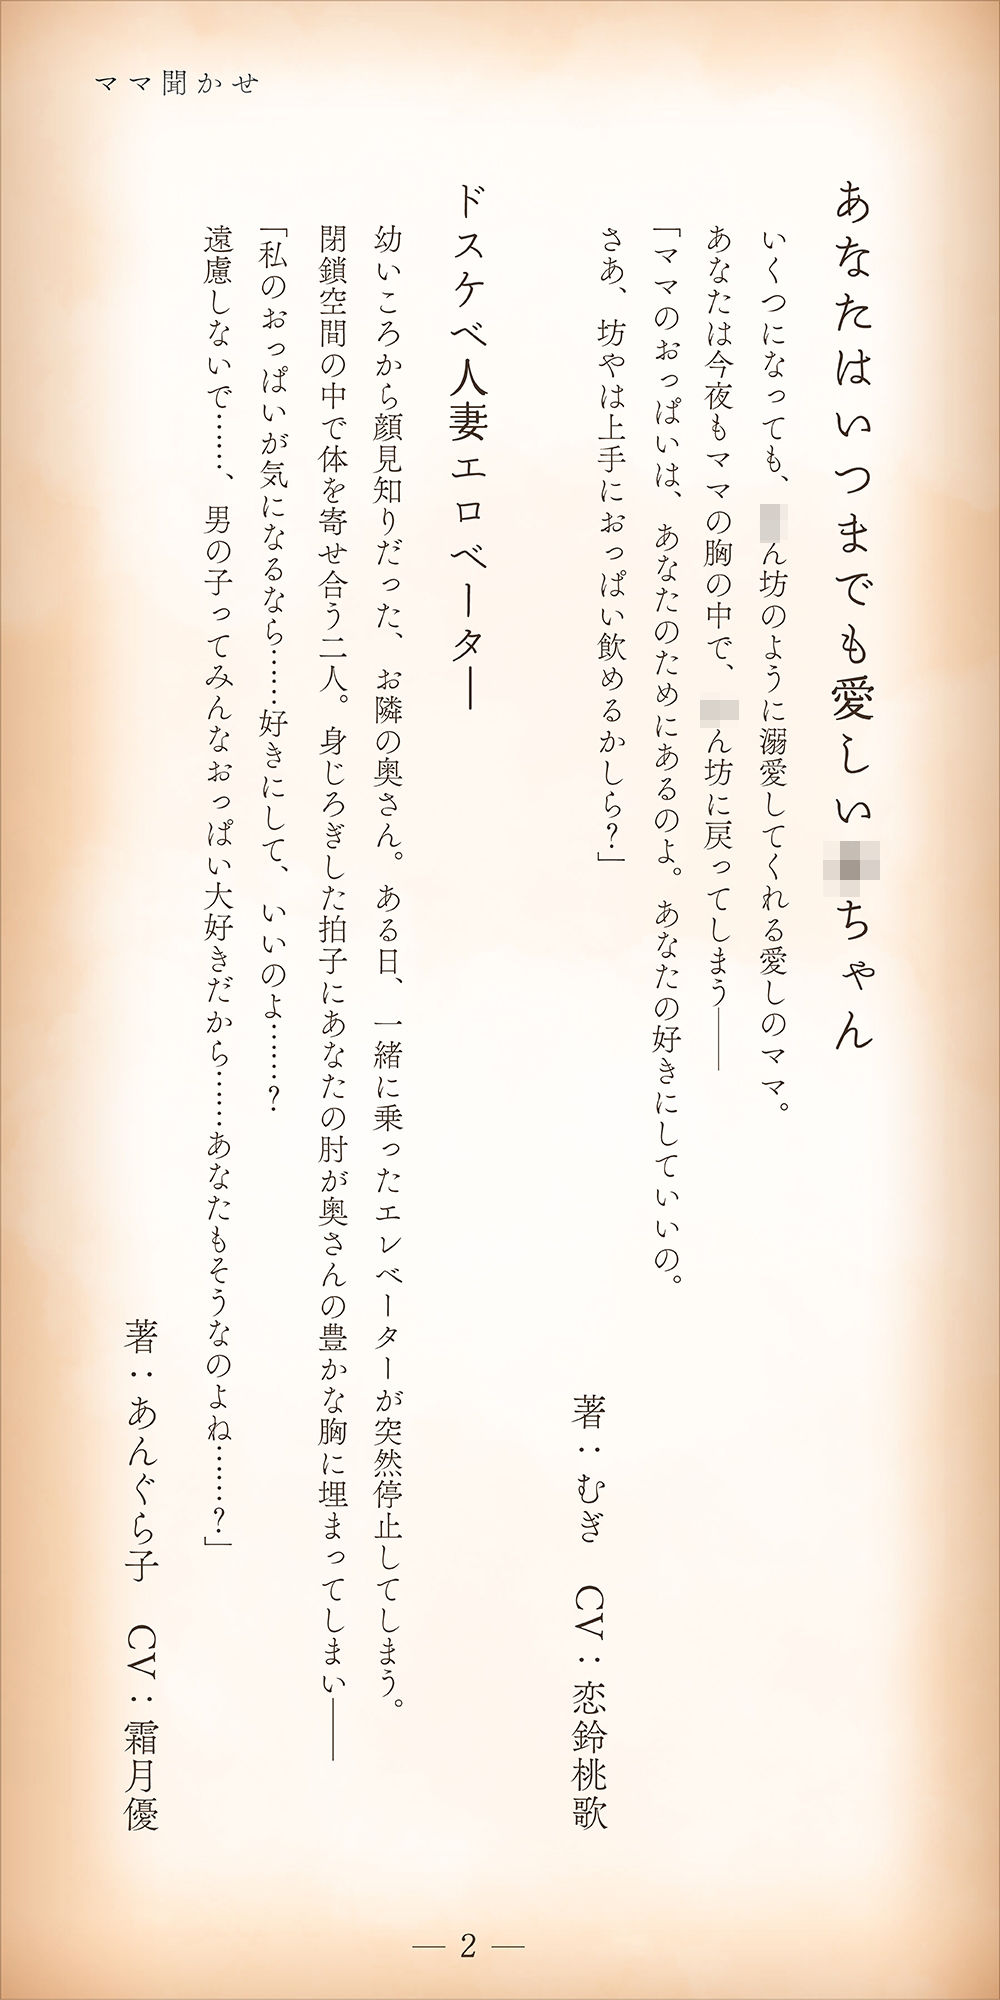 ママ聞かせ
あなたはいつまでも愛しい ちゃん
いくつになっても、 ん坊のように溺愛してくれる愛しのママ。
あなたは今夜もママの胸の中で、 ん坊に戻ってしまう――
「ママのおっぱいは、あなたのためにあるのよ。あなたの好きにしていいの。
さあ、坊やは上手におっぱい飲めるかしら?」
著：むぎ　CV：恋鈴桃歌
ドスケベ人妻エロベーター
幼いころから顔見知りだった、お隣の奥さん。ある日、一緒に乗ったエレベーターが突然停止してしまう。
閉鎖空間の中で体を寄せ合う二人。身じろぎした拍子にあなたの肘が奥さんの豊かな胸に埋まってしまい――
「私のおっぱいが気になるなら……好きにして、いいのよ……?
遠慮しないで……、男の子ってみんなおっぱい大好きだから……あなたもそうなのよね……?」
著：あんぐら子　CV：霜月優
― 2 ―